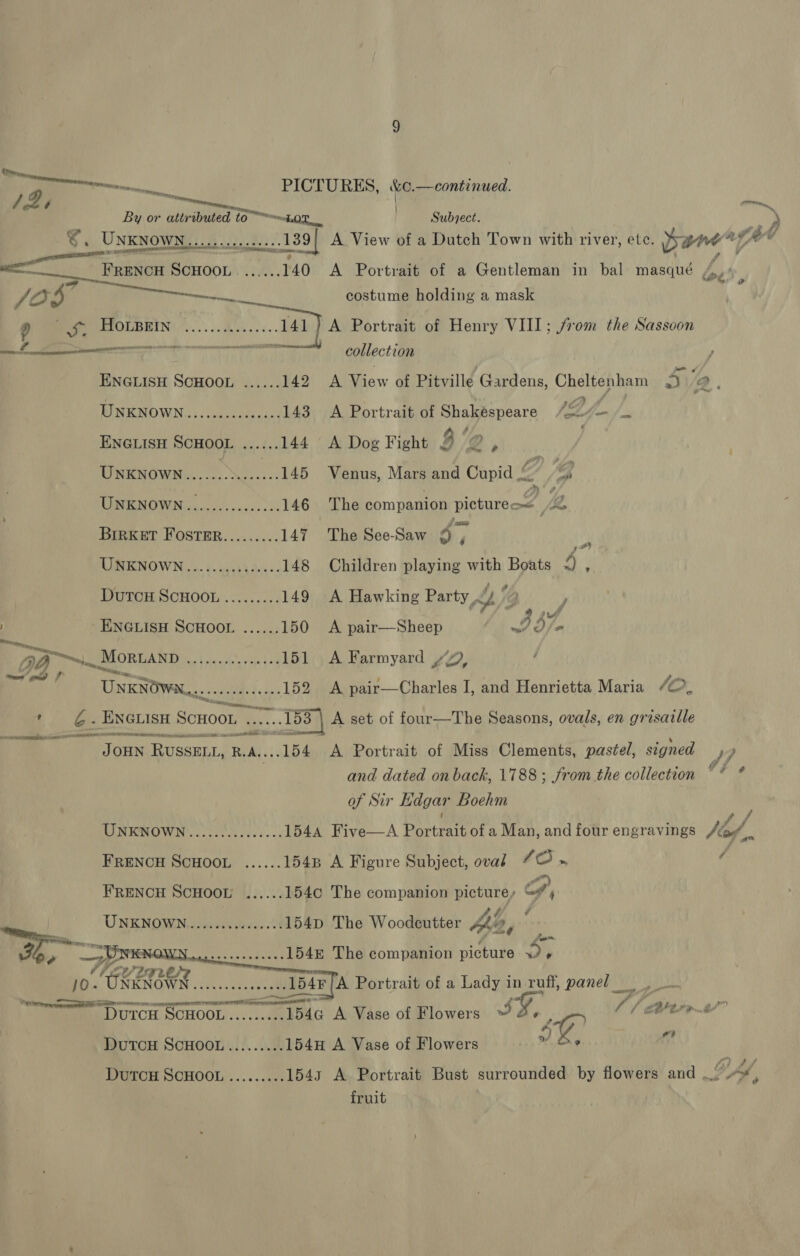 9
PICTURES, &c.—continued.
12,
By or attributed to LOT Subject.
UNKNOWN..............139 A View of a Dutch Town with river, etc.
FRENCH SCHOOL ......140 A Portrait of a Gentleman in bal masqué
costume holding a mask
HOLBEIN ..............141 A Portrait of Henry VIII; from the Sassoon
collection
ENGLISH SCHOOL ......142 A View of Pitville Gardens, Cheltenham
UNKNOWN..............143 A Portrait of Shakespeare
ENGLISH SCHOOL ......144 A Dog Fight
UNKNOWN..............145 Venus, Mars and Cupid
UNKNOWN..............146 The companion picture
BIRKET FOSTER.........147 The See-Saw
UNKNOWN..............148 Children playing with Boats
DUTCH SCHOOL.........149 A Hawking Party
ENGLISH SCHOOL ......150 A pair—Sheep
MORLAND ..............151 A Farmyard
UNKNOWN..............152 A pair—Charles I, and Henrietta Maria
ENGLISH SCHOOL ......153 A set of four—The Seasons, ovals, en grisaille
JOHN RUSSELL, R.A....154 A Portrait of Miss Clements, pastel, signed
and dated on back, 1788; from the collection
of Sir Edgar Boehm
UNKNOWN..............154A Five—A Portrait of a Man, and four engravings
FRENCH SCHOOL ......154B A Figure Subject, oval
FRENCH SCHOOL ......154C The companion picture,
UNKNOWN..............154D The Woodcutter
UNKNOWN..............154E The companion picture
10. UNKNOWN..............154F A Portrait of a Lady in ruff, panel
DUTCH SCHOOL.........154G A Vase of Flowers
DUTCH SCHOOL.........154H A Vase of Flowers
DUTCH SCHOOL.........154J A Portrait Bust surrounded by flowers and
fruit